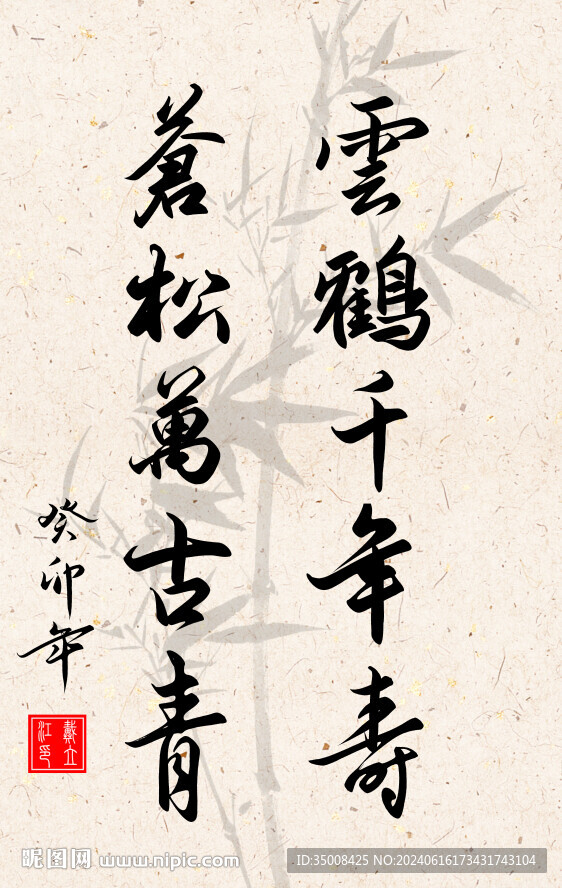 雲鶴千年壽
蒼松萬古青
癸卯年
戴立江印
昵图网 www.nipic.com
ID:35008425 NO:20240616173431743104